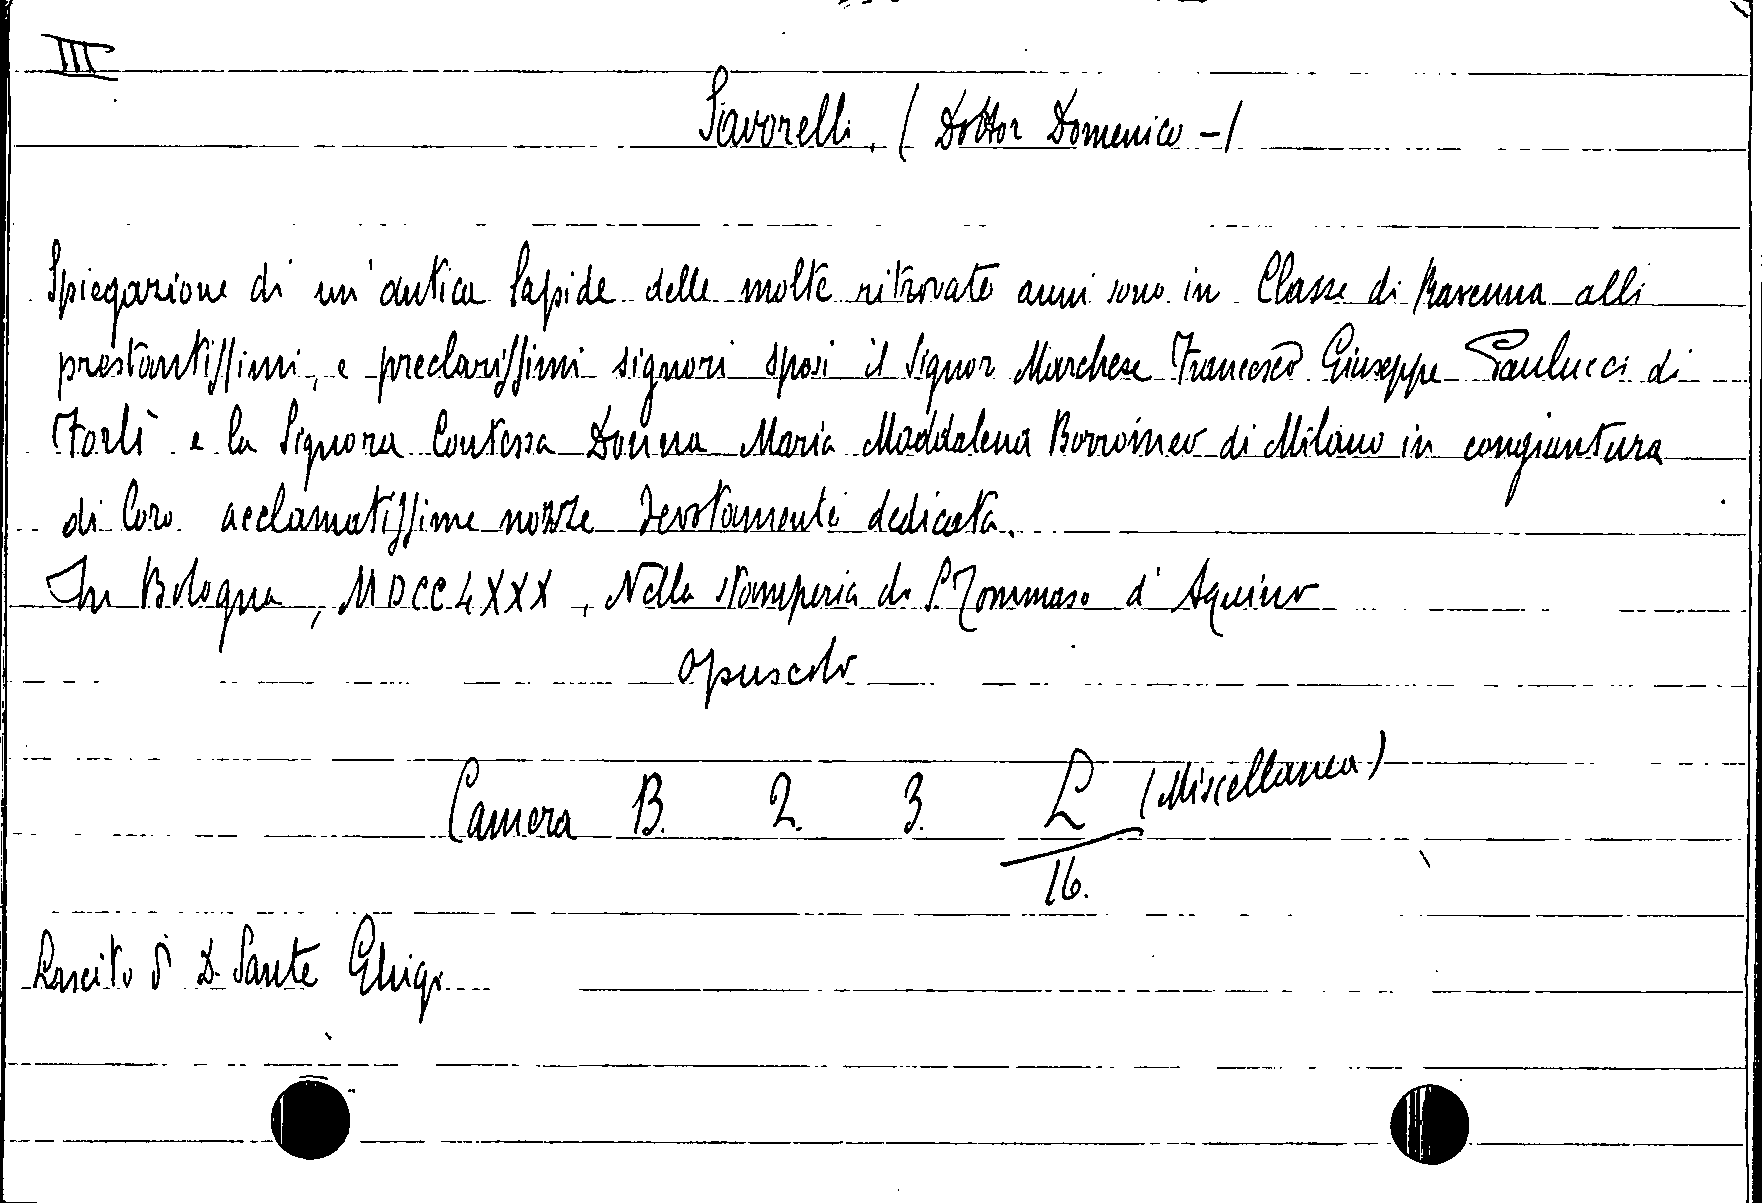 III
Savorelli. (Dottor Domenico -)
Spiegazione di un'antica lapide delle molte ritrovate anni sono in Classe di Ravenna alli
prestantissimi, e preclarissimi signori sposi il Signor Marchese Francesco Giuseppe Paulucci di
Forlì e la Signora Contessa Donna Maria Maddalena Borromeo di Milano in congiuntura
di loro acclamatissime nozze devotamente dedicata.
In Bologna, MDCCLXXX, Nella stamperia di S. Tommaso d'Aquino
opuscolo
Camera B. 2. 3. L (Miscellanea)
16.
Lascito di D. Sante Ghigi